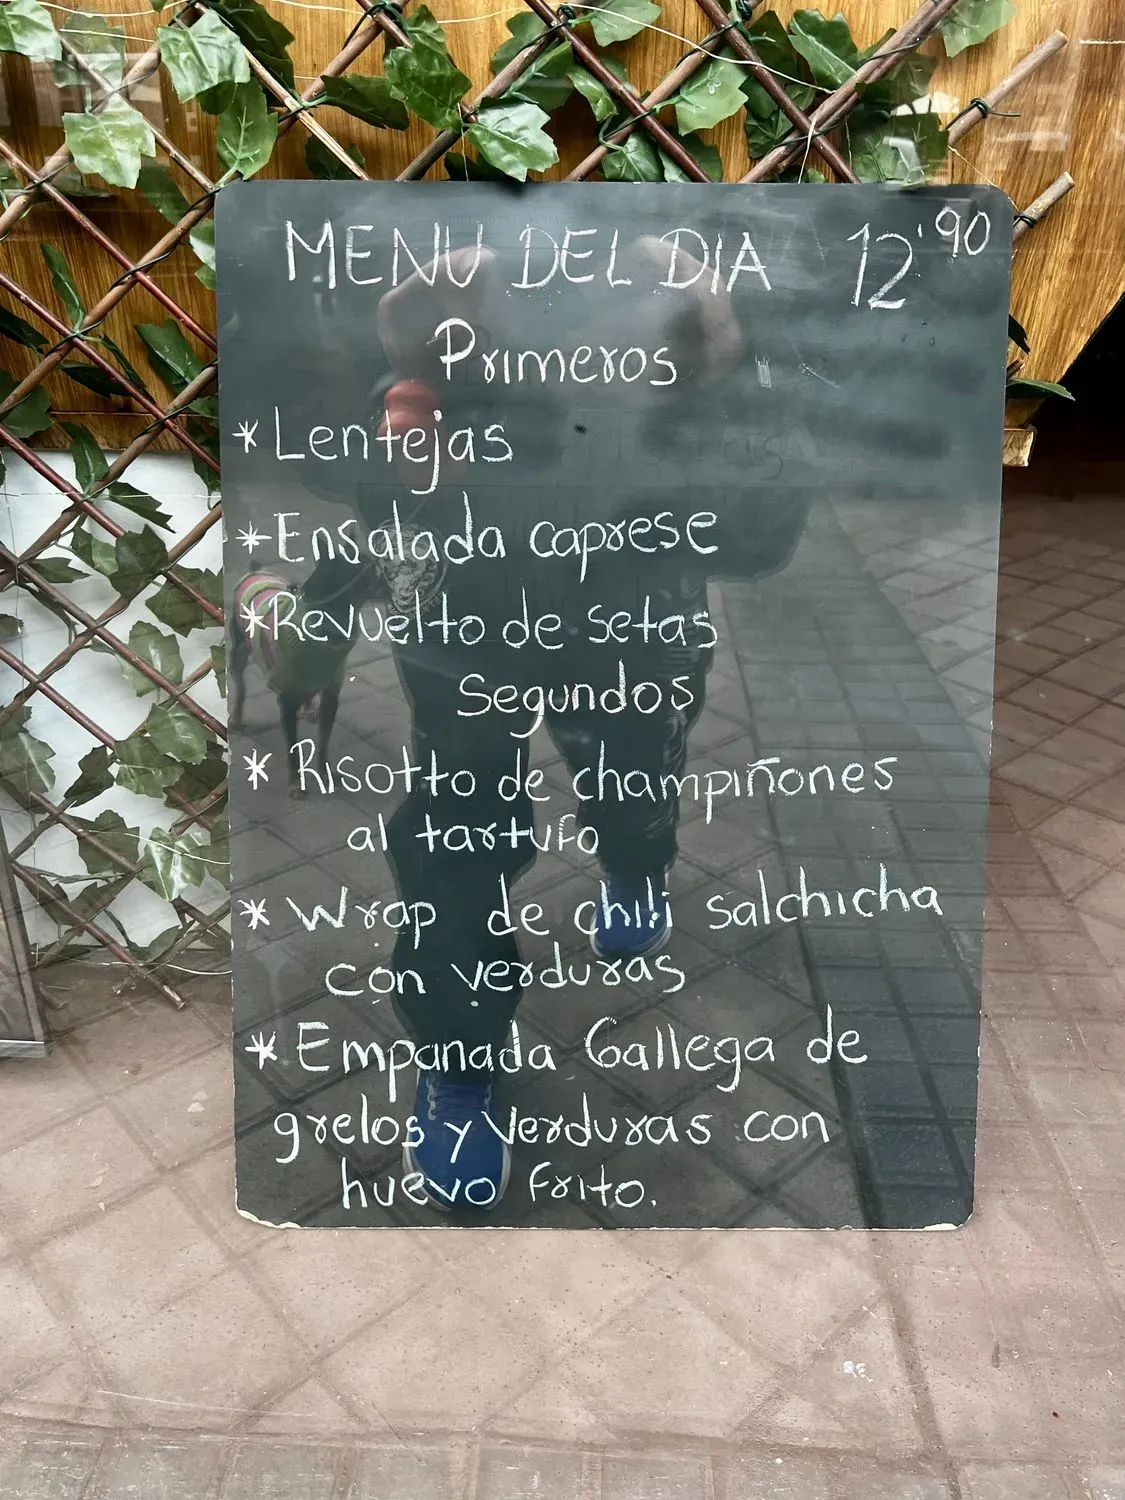 MENU DEL DIA 12'90
Primeros
* Lentejas
* Ensalada caprese
* Revuelto de setas
Segundos
* Risotto de champiñones
al tartufo
* Wrap de chili salchicha
con verduras
* Empanada Gallega de
grelos y verduras con
huevo frito.